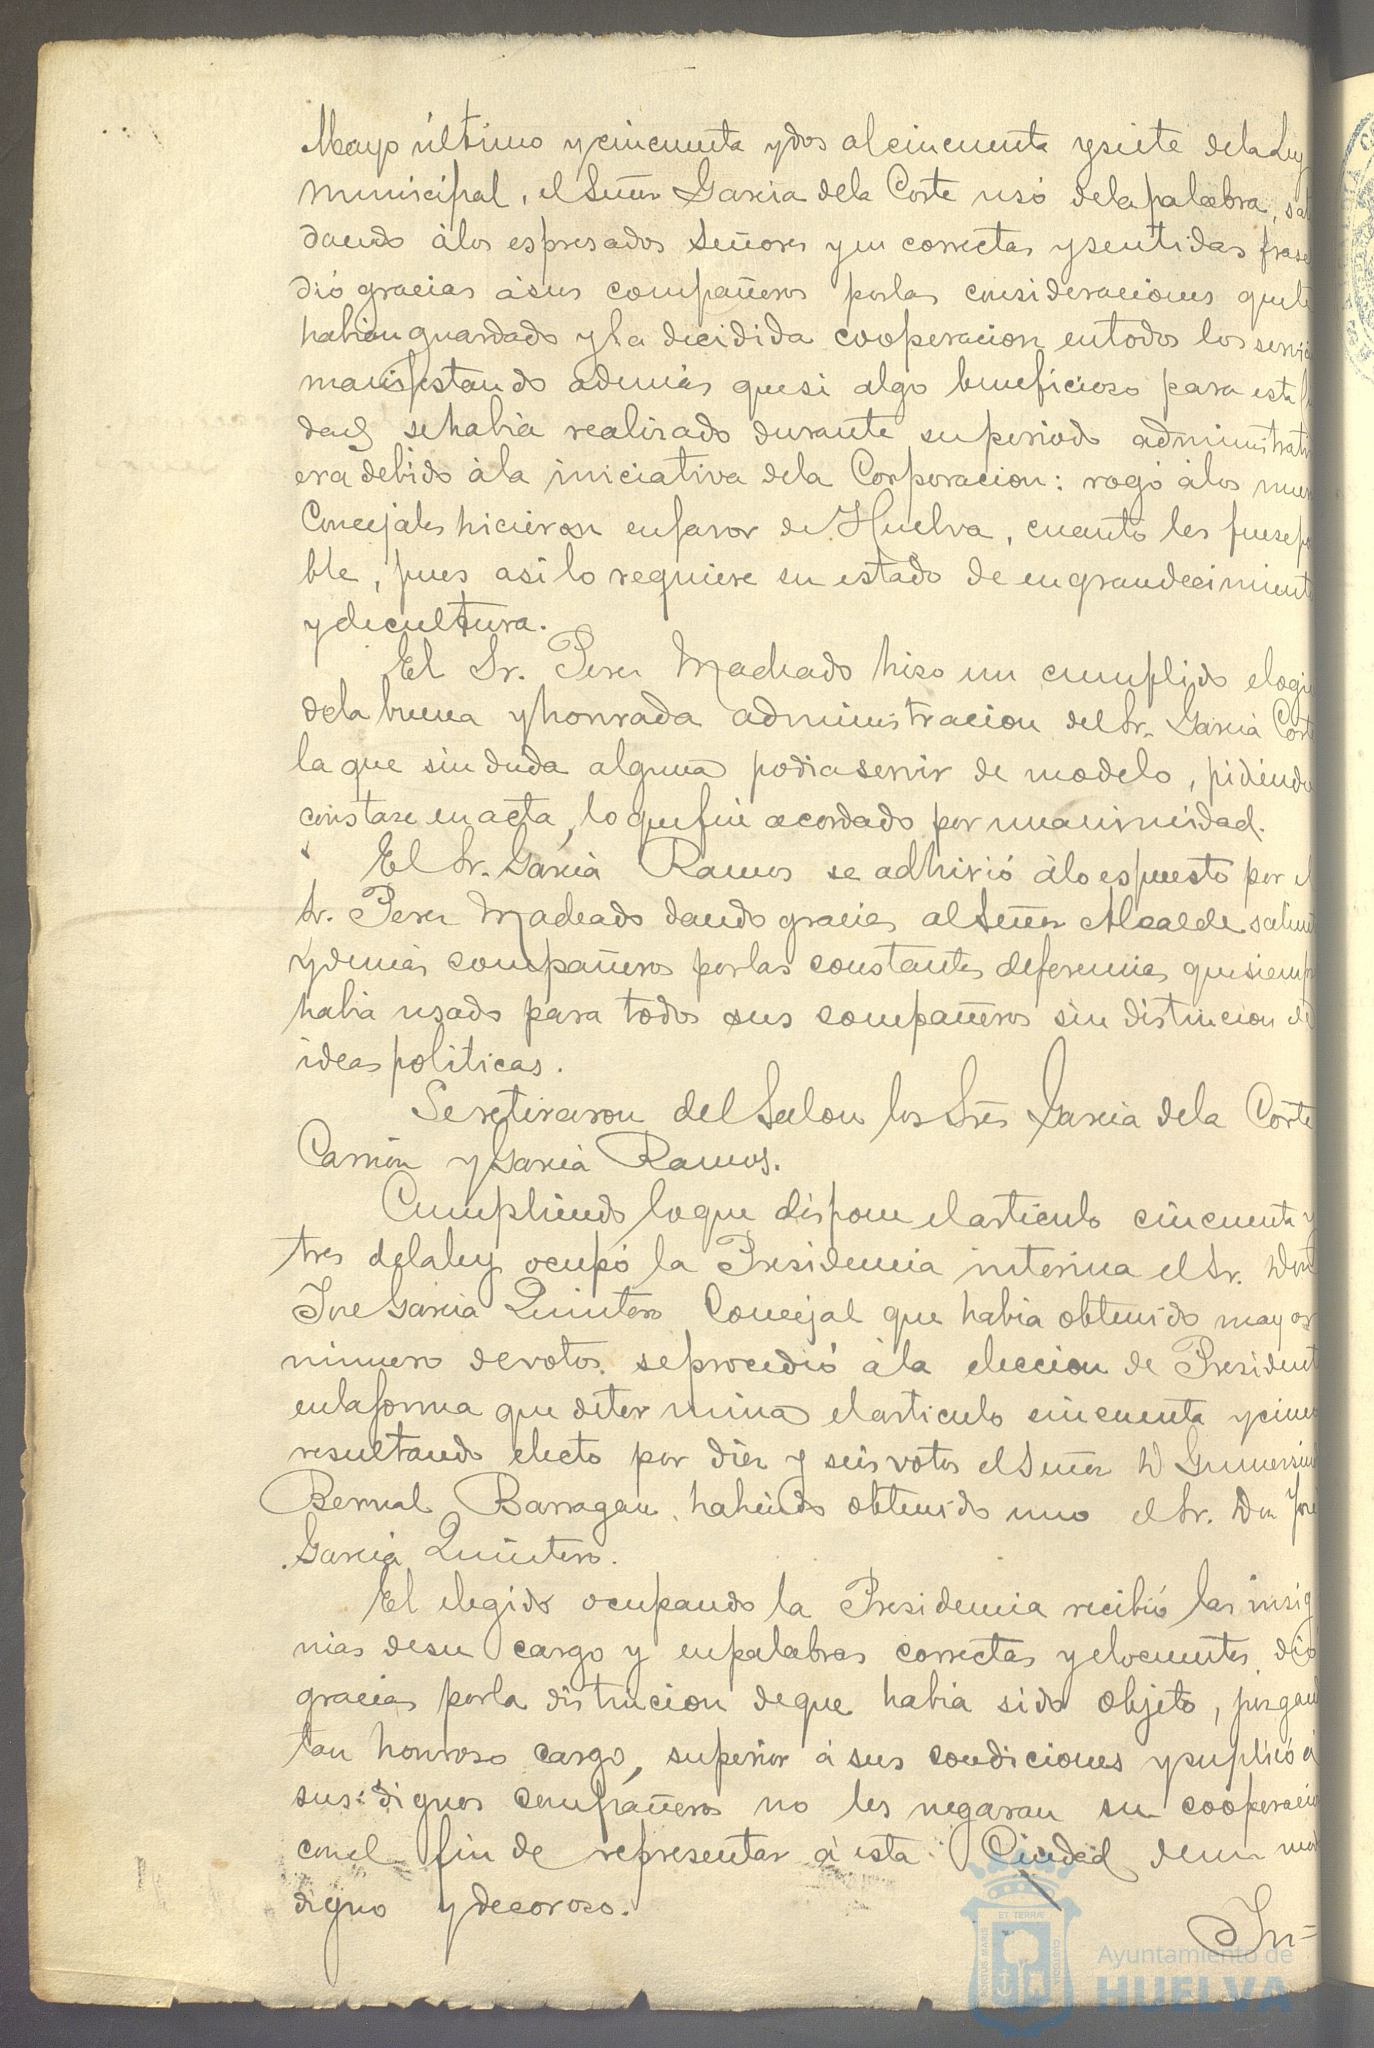 Mayo último y cincuenta y dos al cincuenta y siete de la Ley
municipal, el Señor Garcia de la Corte usó de la palabra, salu
dando á los espresados Señores y en correctas y sentidas frase
dió gracias á sus compañeros por las consideraciones que le
habian guardado y la decidida cooperacion en todos los servici
manifestando además que si algo beneficioso para esta Ciu
dad se habia realizado durante su periodo administrati
era debido á la iniciativa de la Corporacion: rogó á los nuev
Concejales hicieran en favor de Huelva, cuanto les fuese po
ble, pues asi lo requiere su estado de engrandecimient
y de cultura.
El Sr. Perez Machado hizo un cumplido elogi
de la buena y honrada administracion del Sr. Garcia Cort
la que sin duda alguna podia servir de modelo, pidiendo
constase en acta, lo que fué acordado por unanimidad.
El Sr. Garcia Ramos se adhirió á lo espuesto por el
Sr. Perez Machado dando gracias al Señor Alcalde salient
y demás compañeros por las constantes deferencias que siemp
habia usado para todos sus compañeros sin distincion de
ideas politicas.
Se retiraron del Salon los Sres Garcia de la Corte
Carrión y Garcia Ramos.
Cumpliendo lo que dispone el articulo cincuenta y
tres de la ley ocupó la Presidencia interina el Sr. Don
Jose Garcia Quintero Concejal que habia obtenido mayor
número de votos. se procedió á la eleccion de President
en la forma que determina el articulo cincuenta y cinco
resultando electo por diez y seis votos el Señor D Gumersin
Bernal Barragan, habiendo obtenido uno el Sr. Don Jose
Garcia Quintero.
El elegido ocupando la Presidencia recibió las insig
nias de su cargo y en palabras correctas y elocuentes dió
gracias por la distincion de que habia sido objeto,
tan honroso cargo, superior á sus condiciones y suplicó á
sus dignos compañeros no les negaran su cooperació
con el fin de representar á esta Ciudad de un mod
digno y decoroso.
In=
ET TERRÆ
PORTUS MARIS
CUSTODIA
Ayuntamiento de
HUELVA